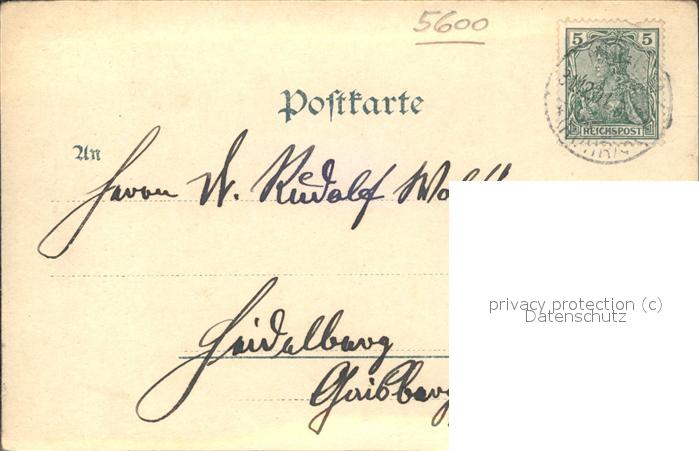 5600
5 5
REICHSPOST
Postkarte
An
Herrn Dr. Rudolf
Heidelberg
Gaisberg
privacy protection (c)
Datenschutz